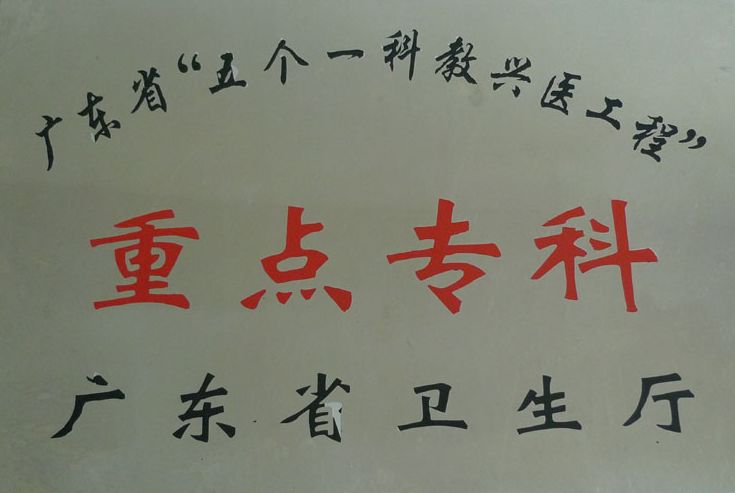 广东省“五个一科教兴医工程”
重点专科
广东省卫生厅